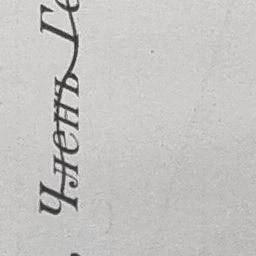 Членъ Ге